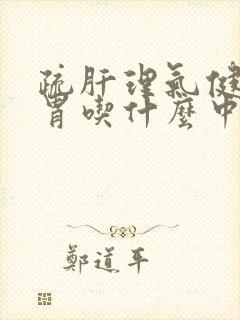 疏肝理氣健
胃喫什麼中
鄭道平